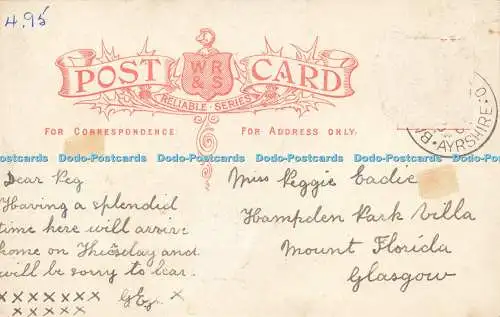 4.95
POST CARD
WR
&S
RELIABLE SERIES
FOR CORRESPONDENCE
FOR ADDRESS ONLY.
AYRSHIRE
Dodo-Postcards Dodo-Postcards Dodo-Postcards Dodo-Postcards Dodo-Postcards
Dear Peg
Having a splendid
time here will arrive
home on and
will be sorry to
x x x x x x x x
x x x x x
Miss Peggie Eadie
Hampden Park Villa
Mount Florida
Glasgow